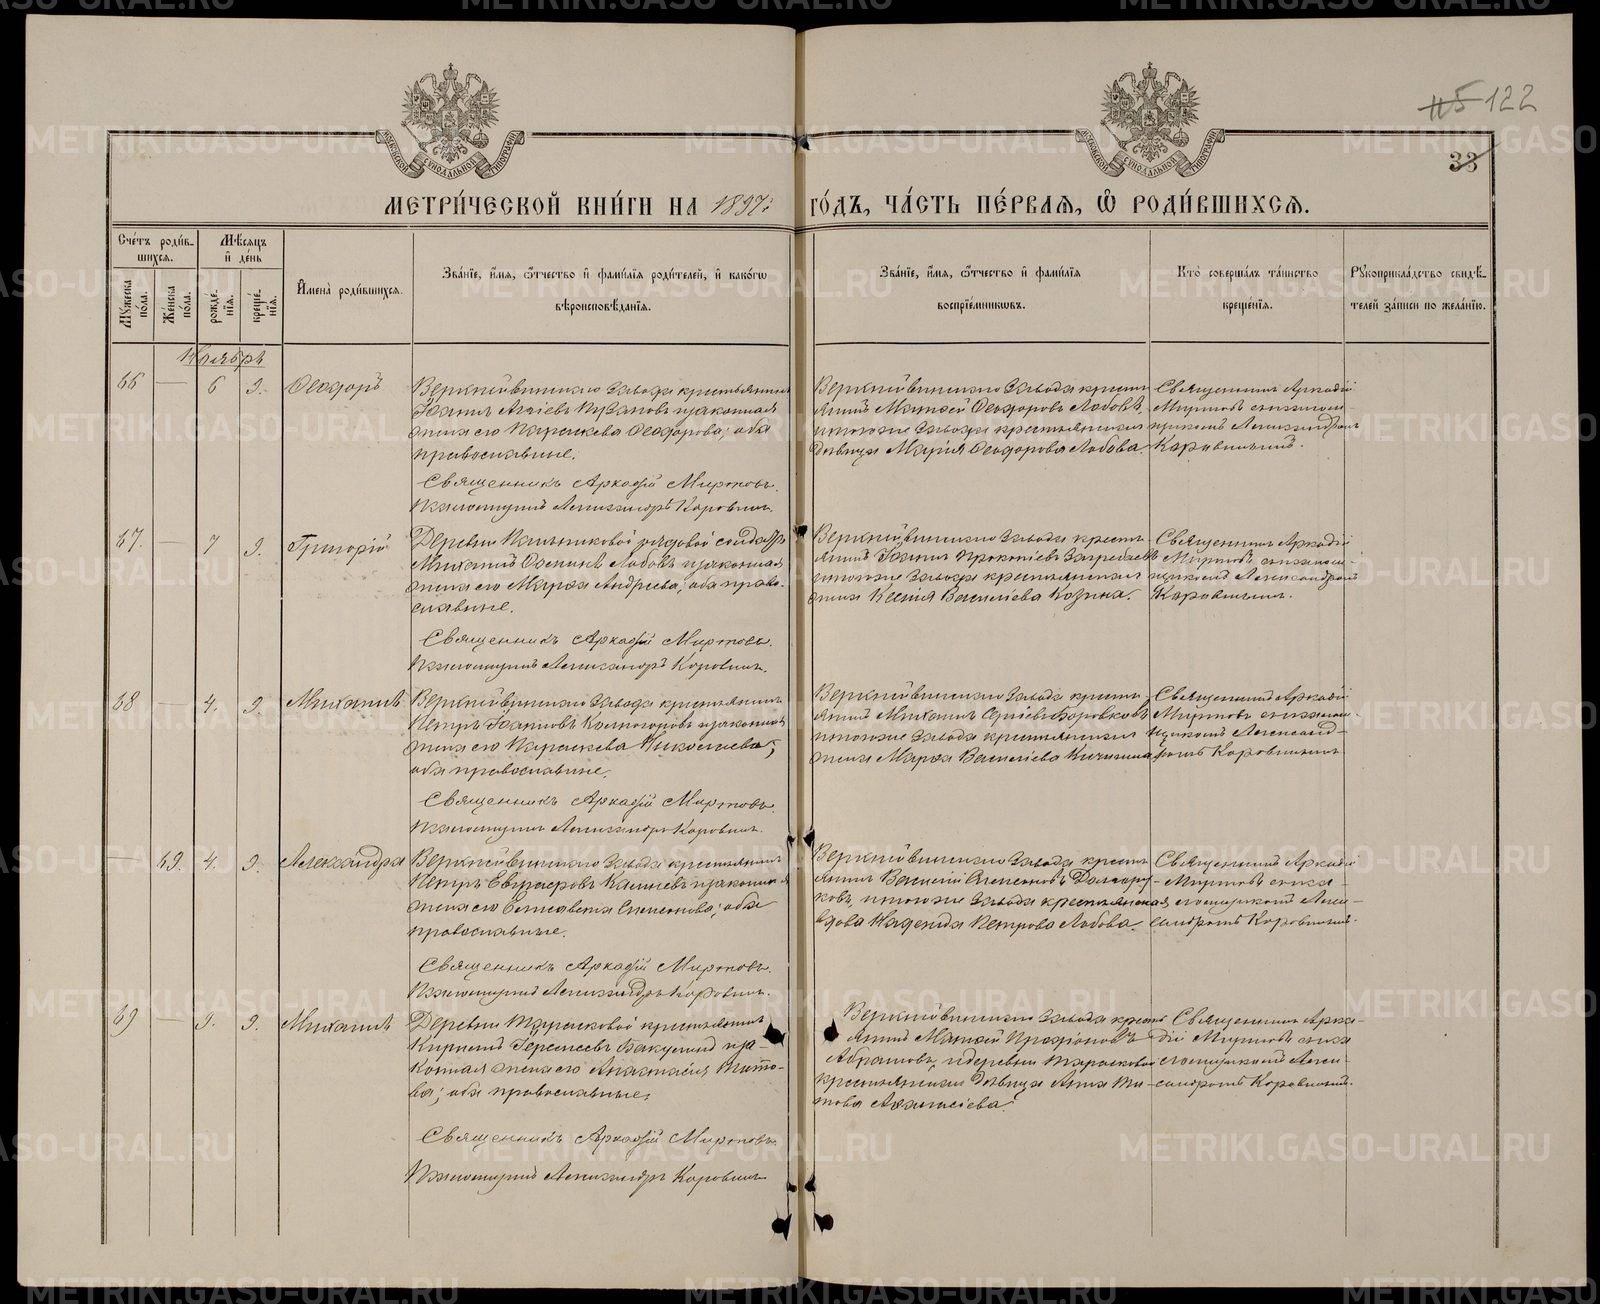 115 122
33
МЕТРИ́ЧЕСКОЙ КНИ́ГИ НА 1897
ГО́ДЪ, ЧА́СТЬ ПЕ́РВАѦ, Ѽ РОДИ́ВШИХСѦ.
Сче́тъ роди́в-
шихсѧ.
Мѣ́сѧцъ
и҆ де́нь
И҆мена̀ роди́вшихсѧ.
Зва́нїе, и҆́мѧ, ѻ҆́тчество и҆ фами́лїѧ роди́телей, и҆ како́гѡ
вѣроисповѣ́данїѧ.
Зва́нїе, и҆́мѧ, ѻ҆́тчество и҆ фами́лїѧ
воспрїе́мникѡвъ.
Кто̀ соверша́лъ та́инство
креще́нїѧ.
Рукоприкла́дство свидѣ́-
телей за́писи по жела́нїю.
Мꙋ́жеска по́ла.
Же́нска по́ла.
рожде́-нїѧ.
креще́-нїѧ.
Ноябрь
66 — 6 9. Ѳеодоръ
Верхнейвинскаго завода крестьянинъ
Іоаннъ и законная
жена его Параскева Ѳеодорова; оба
православные.
Священникъ Аркадій Миртовъ.
Псаломщикъ Александръ Коровинъ.
Верхнейвинскаго завода кресть-
янинъ Матѳей Ѳеодоровъ Лобовъ,
и тогоже завода крестьянская
дѣвица Марія Ѳеодорова Лобова.
Священникъ Аркадій
Миртовъ съ псалом-
щикомъ Александромъ
Коровинымъ.
67. — 7 9. Григорій
Деревни рядовой солдатъ
Михаилъ Лобовъ и законная
жена его Марѳа Андреева; оба право-
славные.
Священникъ Аркадій Миртовъ.
Псаломщикъ Александръ Коровинъ.
Верхнейвинскаго завода кресть-
янинъ Іоаннъ Прокопіевъ
и тогоже завода крестьянская
жена Ксенія Василіева Козина.
Священникъ Аркадій
Миртовъ съ псалом-
щикомъ Александромъ
Коровинымъ.
68 — 4. 9. Михаилъ
Верхнейвинскаго завода крестьянинъ
Петръ Іоанновъ и законная
жена его Параскева Николаева;
оба православные.
Священникъ Аркадій Миртовъ.
Псаломщикъ Александръ Коровинъ.
Верхнейвинскаго завода кресть-
янинъ Михаилъ Сергіевъ Боровковъ
и тогоже завода крестьянская
жена Марѳа Василіева
Священникъ Аркадій
Миртовъ съ псалом-
щикомъ Александ-
ромъ Коровинымъ.
— 69. 4. 9. Александра
Верхнейвинскаго завода крестьянинъ
Петръ Евграфовъ и законная
жена его Елисавета Симеонова; оба
православные.
Священникъ Аркадій Миртовъ.
Псаломщикъ Александръ Коровинъ.
Верхнейвинскаго завода кресть-
янинъ Василій Симеоновъ Долгору-
ковъ, и тогоже завода крестьянская
вдова Надежда Петрова Лобова.
Священникъ Аркадій
Миртовъ съ пса-
ломщикомъ Алек-
сандромъ Коровинымъ.
69 — 9. 9. Михаилъ
Деревни Тарасковой крестьянинъ
Кириллъ Іереміевъ Бакулинъ и за-
конная жена его Анастасія Тито-
ва; оба православные.
Священникъ Аркадій Миртовъ.
Псаломщикъ Александръ Коровинъ.
Верхнейвинскаго завода кресть-
янинъ Матѳей
Абрамовъ, и деревни Тарасковой
крестьянская дѣвица Анна Ти-
това
Священникъ Арка-
дій Миртовъ съ пса-
ломщикомъ Алек-
сандромъ Коровинымъ.
METRIKI.GASO-URAL.RU